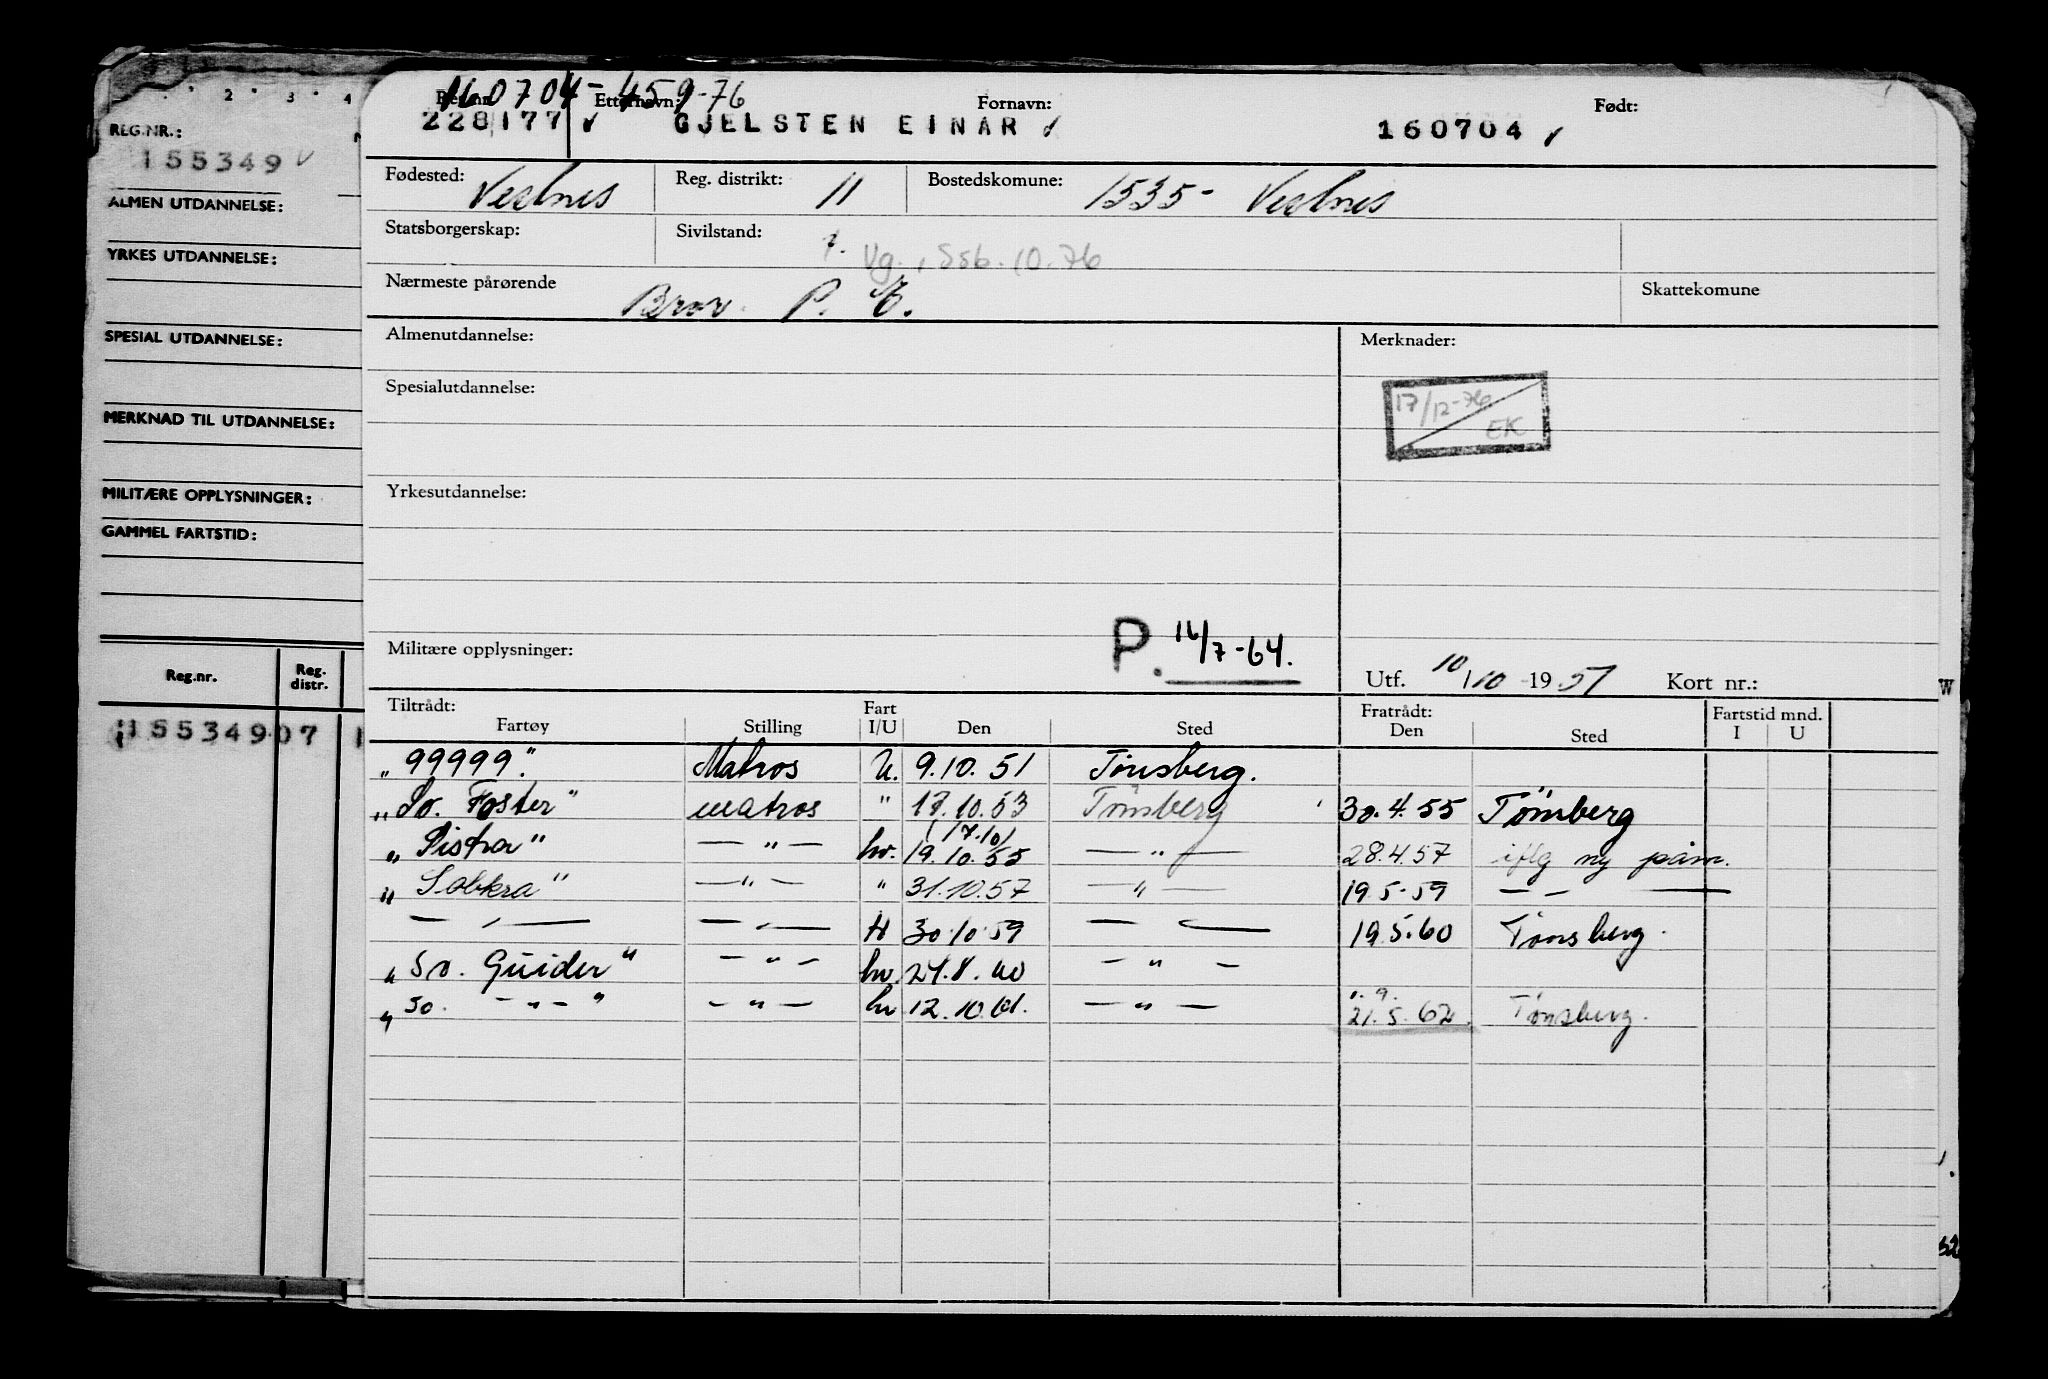 2 3 4
REG.NR.:
155349
ALMEN UTDANNELSE:
YRKES UTDANNELSE:
SPESIAL UTDANNELSE:
MERKNAD TIL UTDANNELSE:
MILITÆRE OPPLYSNINGER:
GAMMEL FARTSTID:
Reg.nr. Reg. distr.
155349 07 1
160704-459-76
Reg.nr. Etternavn: Fornavn: Født:
228177 GJELSTEN EINAR 160704
Fødested: Vestnes Reg. distrikt: 11 Bostedskomune: 1535- Vestnes
Statsborgerskap: Sivilstand: Vg., Ssb. 10.76
Nærmeste pårørende Bror P. E. Skattekomune
Almenutdannelse: Merknader:
Spesialutdannelse: 17/12-76 EK
Yrkesutdannelse:
Militære opplysninger: P. 16/7-64.
Utf. 10/10 -19 51 Kort nr.:
Tiltrådt: Fart Fratrådt: Fartstid mnd.
Fartøy Stilling I/U Den Sted Den Sted I U
"99999" Matros U. 9.10.51 Tønsberg.
"So. Foster" matros " 17.10.53 Tønsberg 30.4.55 Tønsberg
17.10
"Sistra" — " — hv. 19.10.55 — " — 28.4.57 iflg ny påm.
"Sobkra" — " — " 31.10.57 — " — 19.5-59 — —
— " — — " — H 30.10.59 — " — 19.5.60 Tønsberg.
"So. Guider" — " — hv. 24.8.60 — " —
"So. — " — " — " — hv 12.10.61. — " — 21.5.62. Tønsberg.